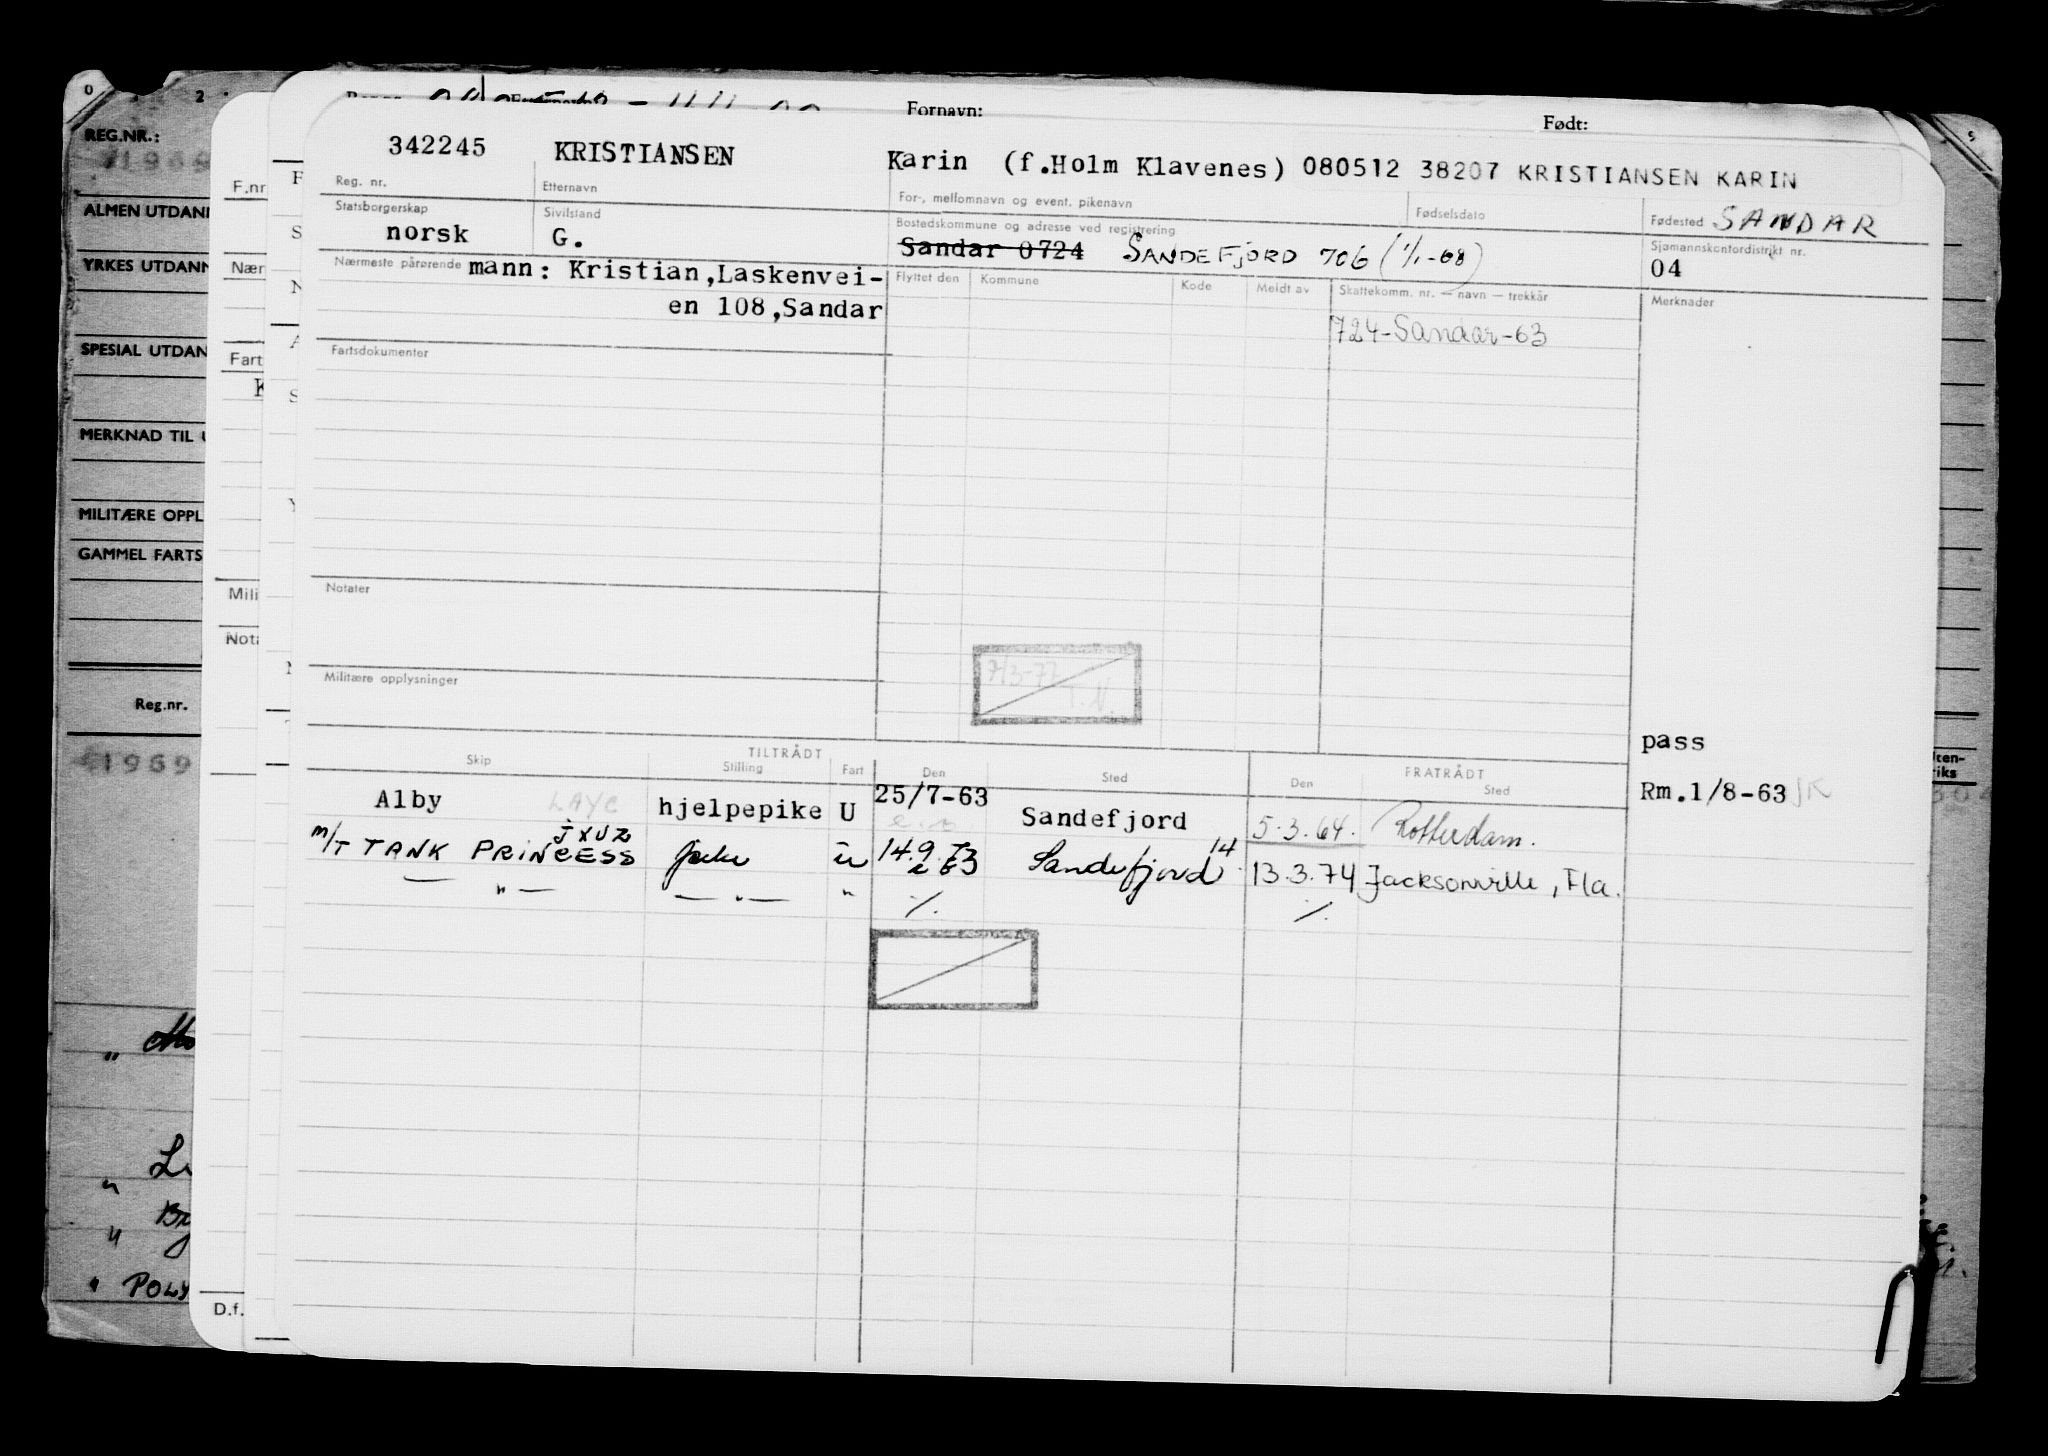 Fornavn:
Født:
342245 KRISTIANSEN Karin (f.Holm Klavenes) 080512 38207 KRISTIANSEN KARIN
Reg. nr. Etternavn For-, mellomnavn og event. pikenavn Fødselsdato Fødested SANDAR
Statsborgerskap Sivilstand Bostedskommune og adresse ved registrering Sjømannskontordistrikt nr.
norsk G. Sandar 0724 SANDEFJORD 706 (1/1-68) 04
Nærmeste pårørende mann: Kristian,Laskenvei-
en 108,Sandar
Flyttet den Kommune Kode Meldt av Skattekomm. nr. — navn — trekkår Merknader
724-Sandar-63
Fartsdokumenter
Notater
7/3-77
T.N.
Militære opplysninger
pass
Rm.1/8-63 JK
TILTRÅDT FRATRÅDT
Skip Stilling Fart Den Sted Den Sted
Alby LAYC hjelpepike U 25/7-63 Sandefjord 5.3.64. Rotterdam.
JXUZ
M/T TANK PRINCESS U 14.9.73 Sandefjord 14 13.3.74 Jacksonville, Fla.
— " — — " — " ./. ./.
O
2
5
REG.NR.:
1969
ALMEN UTDANN
YRKES UTDANN
SPESIAL UTDAN
MERKNAD TIL U
MILITÆRE OPPL
GAMMEL FARTS
Reg.nr.
1969
F.nr
Nær
Fart
K
Mili
Nota
D.f.
F
S
N
A
S
Y
" POLY